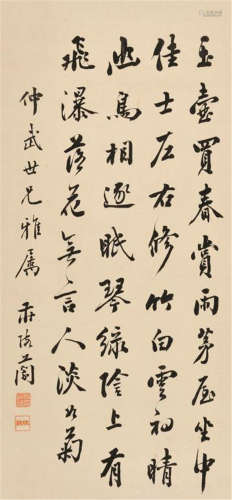 玉壺買春賞雨茅屋坐中
佳士左右修竹白雲初晴
幽鳥相逐眠琴綠陰上有
飛瀑落花無言人淡如菊
仲武世兄雅屬 莊陔蘭